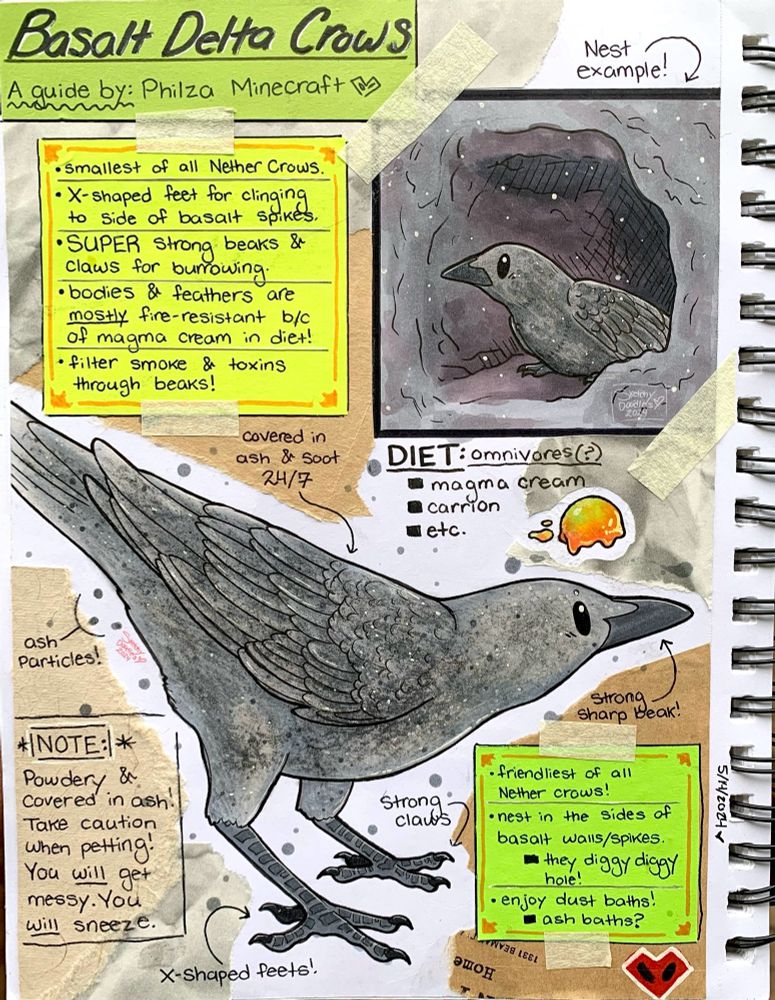 Basalt Delta Crows
A guide by: Philza Minecraft
Nest
example!
• smallest of all Nether Crows.
• X-shaped feet for clinging
to side of basalt spikes.
• SUPER strong beaks &
claws for burrowing.
• bodies & feathers are
mostly fire-resistant b/c
of magma cream in diet!
• filter smoke & toxins
through beaks!
Sketchy
Doodles
2024
covered in
ash & soot
24/7
DIET: omnivores(?)
■ magma cream
■ carrion
■ etc.
ash
Particles!
Sketchy
Doodles
2024
strong
sharp beak!
*|NOTE:|*
Powdery &
covered in ash!
Take caution
when petting!
You will get
messy. You
will sneeze.
strong
claws
X-shaped feets!
• friendliest of all
Nether crows!
• nest in the sides of
basalt walls/spikes.
■ they diggy diggy
hole!
• enjoy dust baths!
■ ash baths?
5/14/2024
1331 BEAM
Home